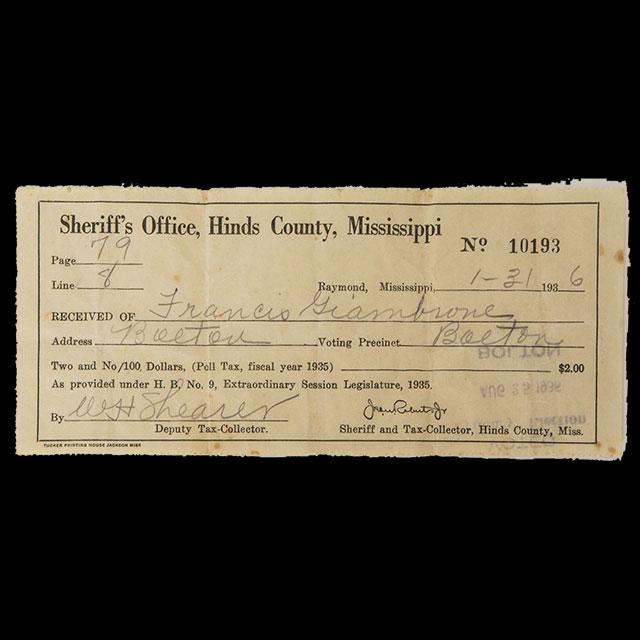 Sheriff's Office, Hinds County, Mississippi
Nº 10193
Page 79
Line 8
Raymond, Mississippi, 1-31 1936
RECEIVED OF Francis Giambrone
Address Bolton Voting Precinct Bolton
Two and No/100 Dollars, (Poll Tax, fiscal year 1935) $2.00
As provided under H. B. No. 9, Extraordinary Session Legislature, 1935.
By W H Shearer
Deputy Tax-Collector.
Sheriff and Tax-Collector, Hinds County, Miss.
TUCKER PRINTING HOUSE JACKSON MISS
BOLTON
AUG 25 1936
Election